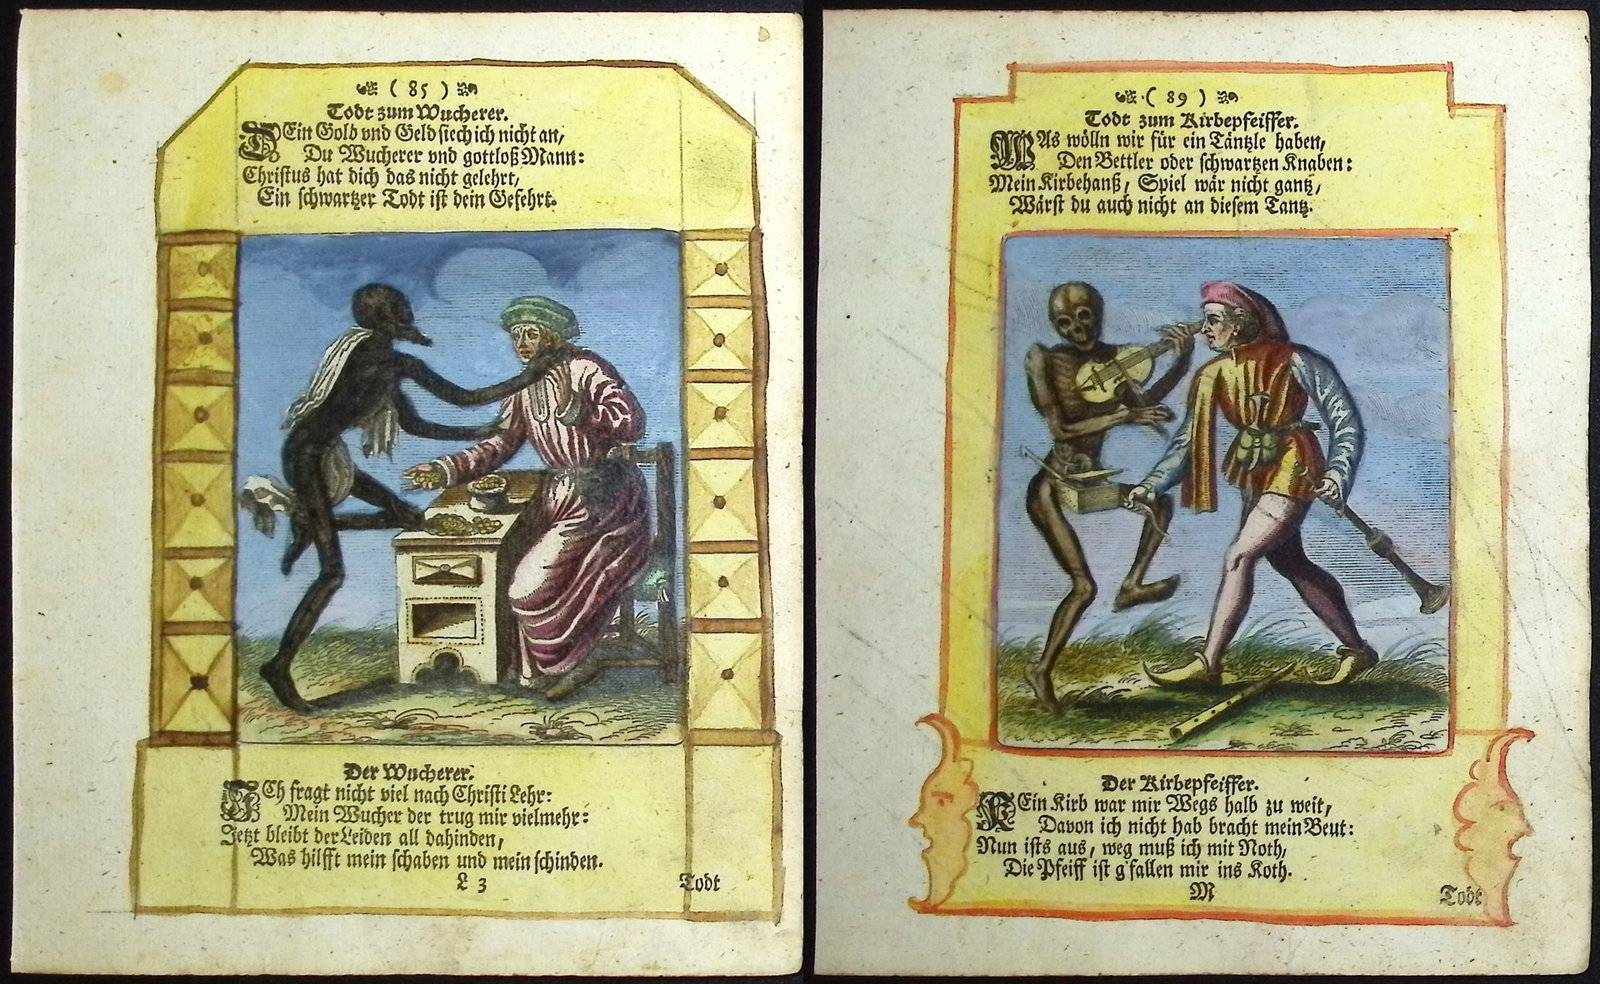 ( 85 )
Todt zum Wucherer.
DEin Gold vnd Geld siech ich nicht an,
Du Wucherer vnd gottloß Mann:
Christus hat dich das nicht gelehrt,
Ein schwartzer Todt ist dein Gefehrt.
Der Wucherer.
ICh fragt nicht viel nach Christi Lehr:
Mein Wucher der trug mir vielmehr:
Jetzt bleibt der Leiden all dahinden,
Was hilfft mein schaben und mein schinden.
L 3
Todt
( 89 )
Todt zum Kirbepfeiffer.
WAs wölln wir für ein Täntzle haben,
Den Bettler oder schwartzen Knaben:
Mein Kirbehanß, Spiel wär nicht gantz,
Wärst du auch nicht an diesem Tantz.
Der Kirbepfeiffer.
KEin Kirb war mir Wegs halb zu weit,
Davon ich nicht hab bracht mein Beut:
Nun ists aus, weg muß ich mit Noth,
Die Pfeiff ist g'fallen mir ins Koth.
M
Todt